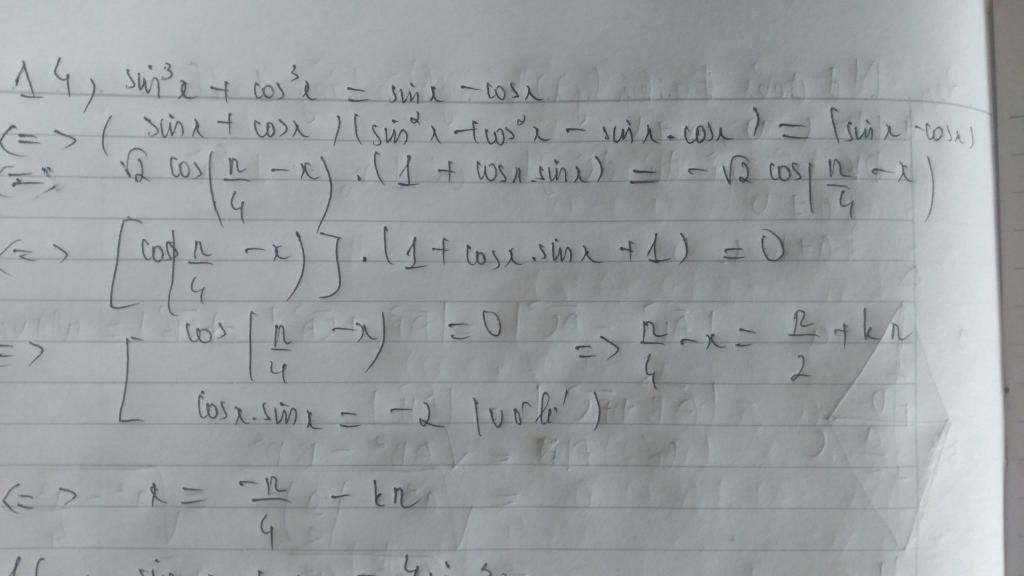 14, sin³x + cos³x = sinx - cosx
<=> (sinx + cosx)(sin²x + cos²x - sinx.cosx) = (sinx - cosx)
<=> √2 cos(π/4 - x).(1 + cosx.sinx) = -√2 cos(π/4 - x)
<=> [cos(π/4 - x)].(1 + cosx.sinx + 1) = 0
=> [ cos(π/4 - x) = 0 => π/4 - x = π/2 + kπ
cosx.sinx = -2 (vô lí)
<=> x = -π/4 - kπ